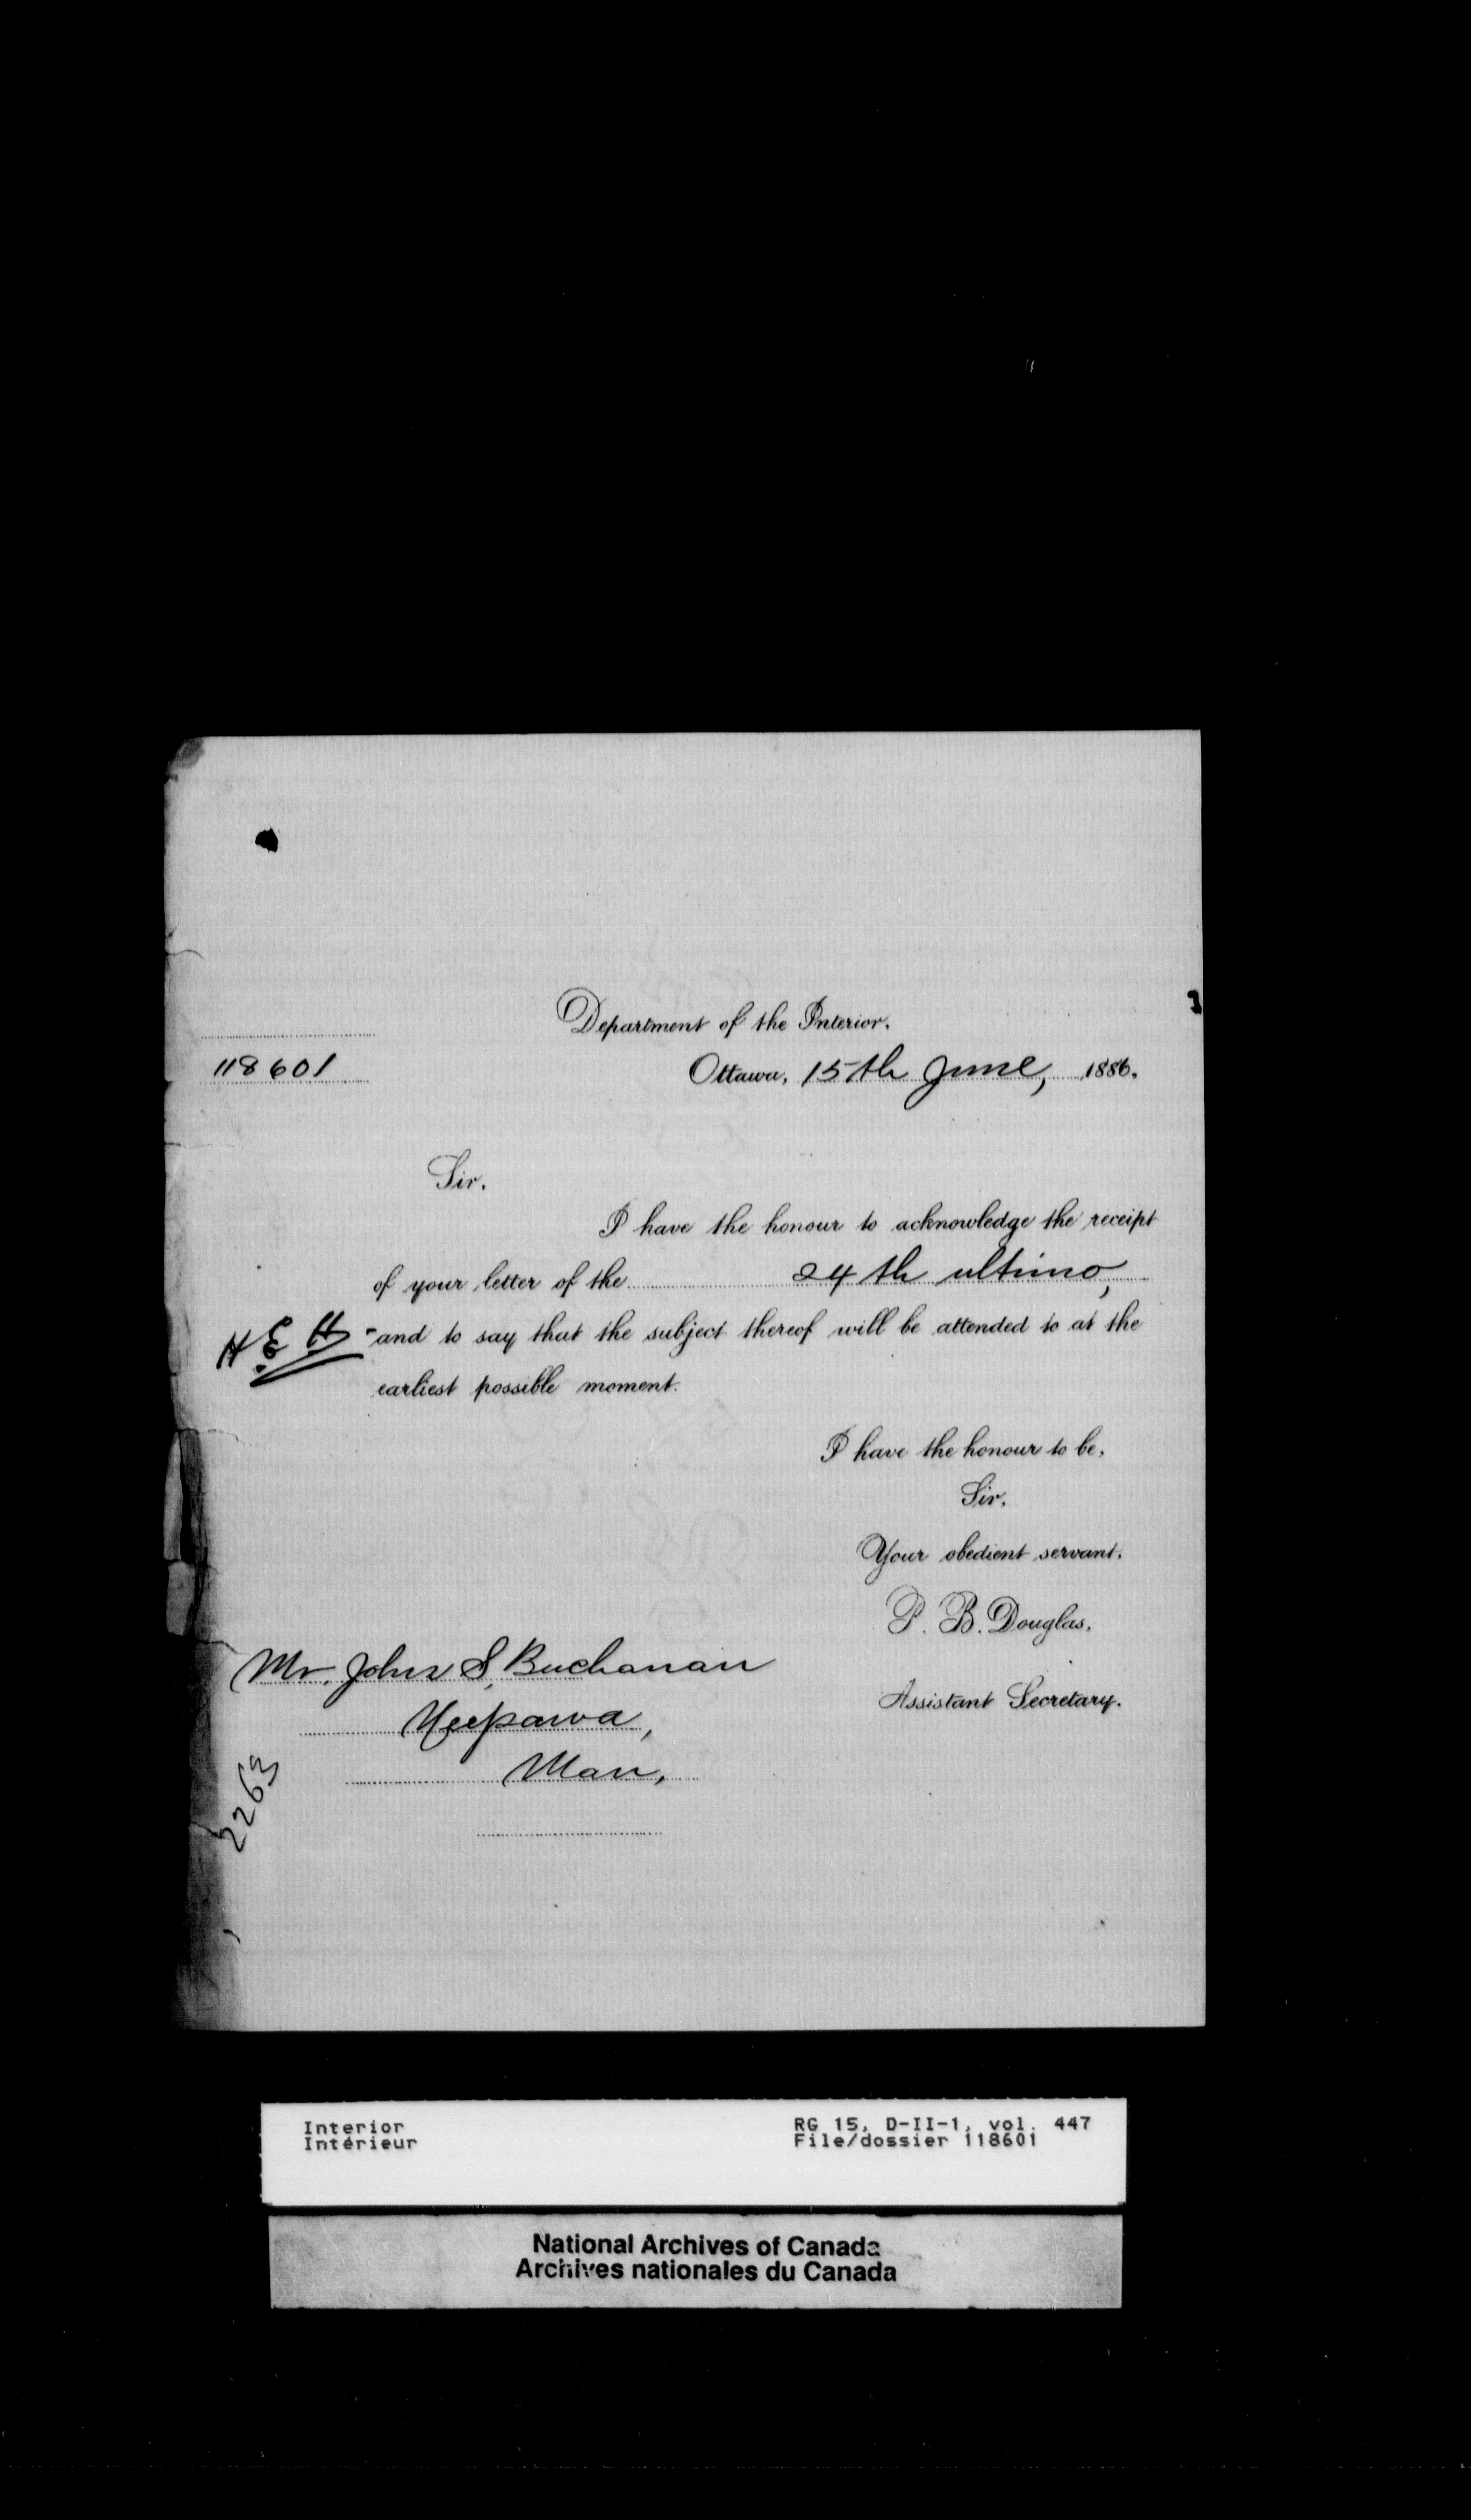 Department of the Interior.
118601
Ottawa, 15th June, 1886.
Sir.
I have the honour to acknowledge the receipt
of your letter of the 24th ultimo,
H E H
and to say that the subject thereof will be attended to at the
earliest possible moment.
I have the honour to be,
Sir,
Your obedient servant.
P. B. Douglas.
Assistant Secretary.
Mr. John S, Buchanan
Neepawa,
Man,
2263
Interior
Intérieur
RG 15, D-II-1, vol. 447
File/dossier 118601
National Archives of Canada
Archives nationales du Canada